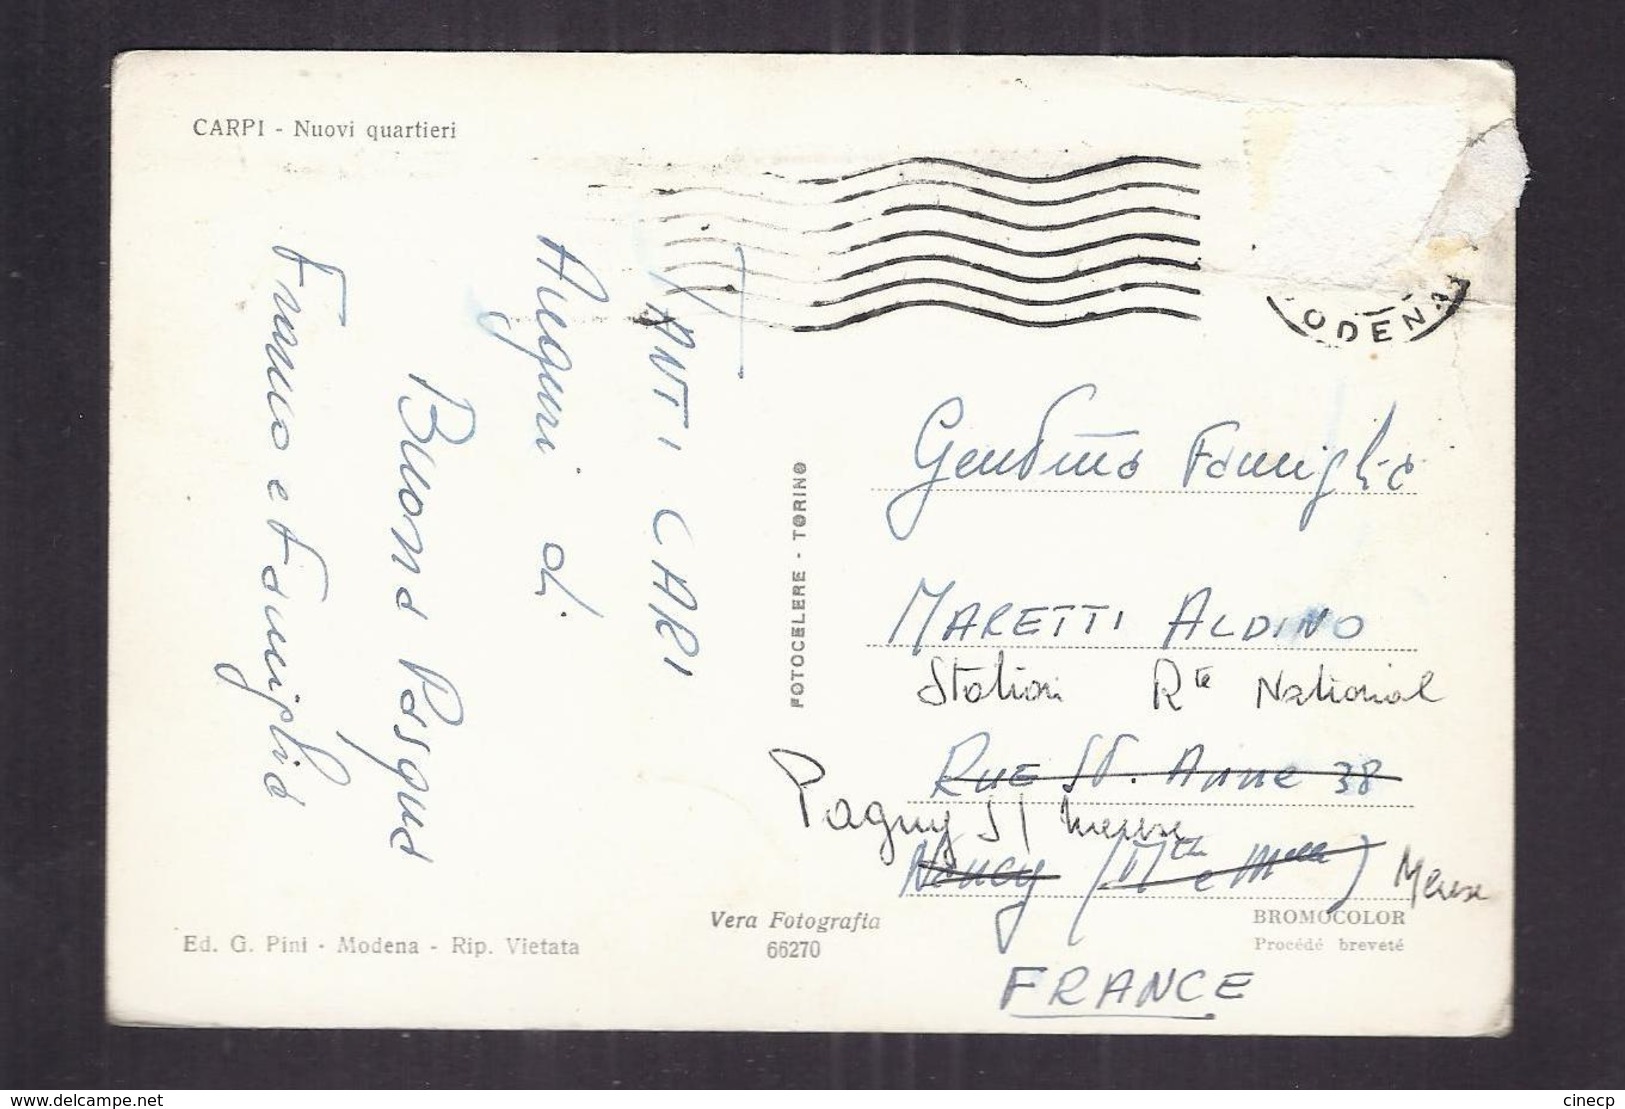 CARPI - Nuovi quartieri
ODENA
TANTI CARI
Auguri di
Buona Pasqua
Franco e Famiglia
FOTOCELERE - TORINO
Gentma Famiglia
MARETTI ALDINO
Station Rte National
RUE St. Anne 38
Pagny s/ Meuse
Nancy (Mthe Mlle) Meuse
FRANCE
Vera Fotografia
66270
BROMOCOLOR
Procédé breveté
Ed. G. Pini - Modena - Rip. Vietata
www.delcampe.net
cinecp